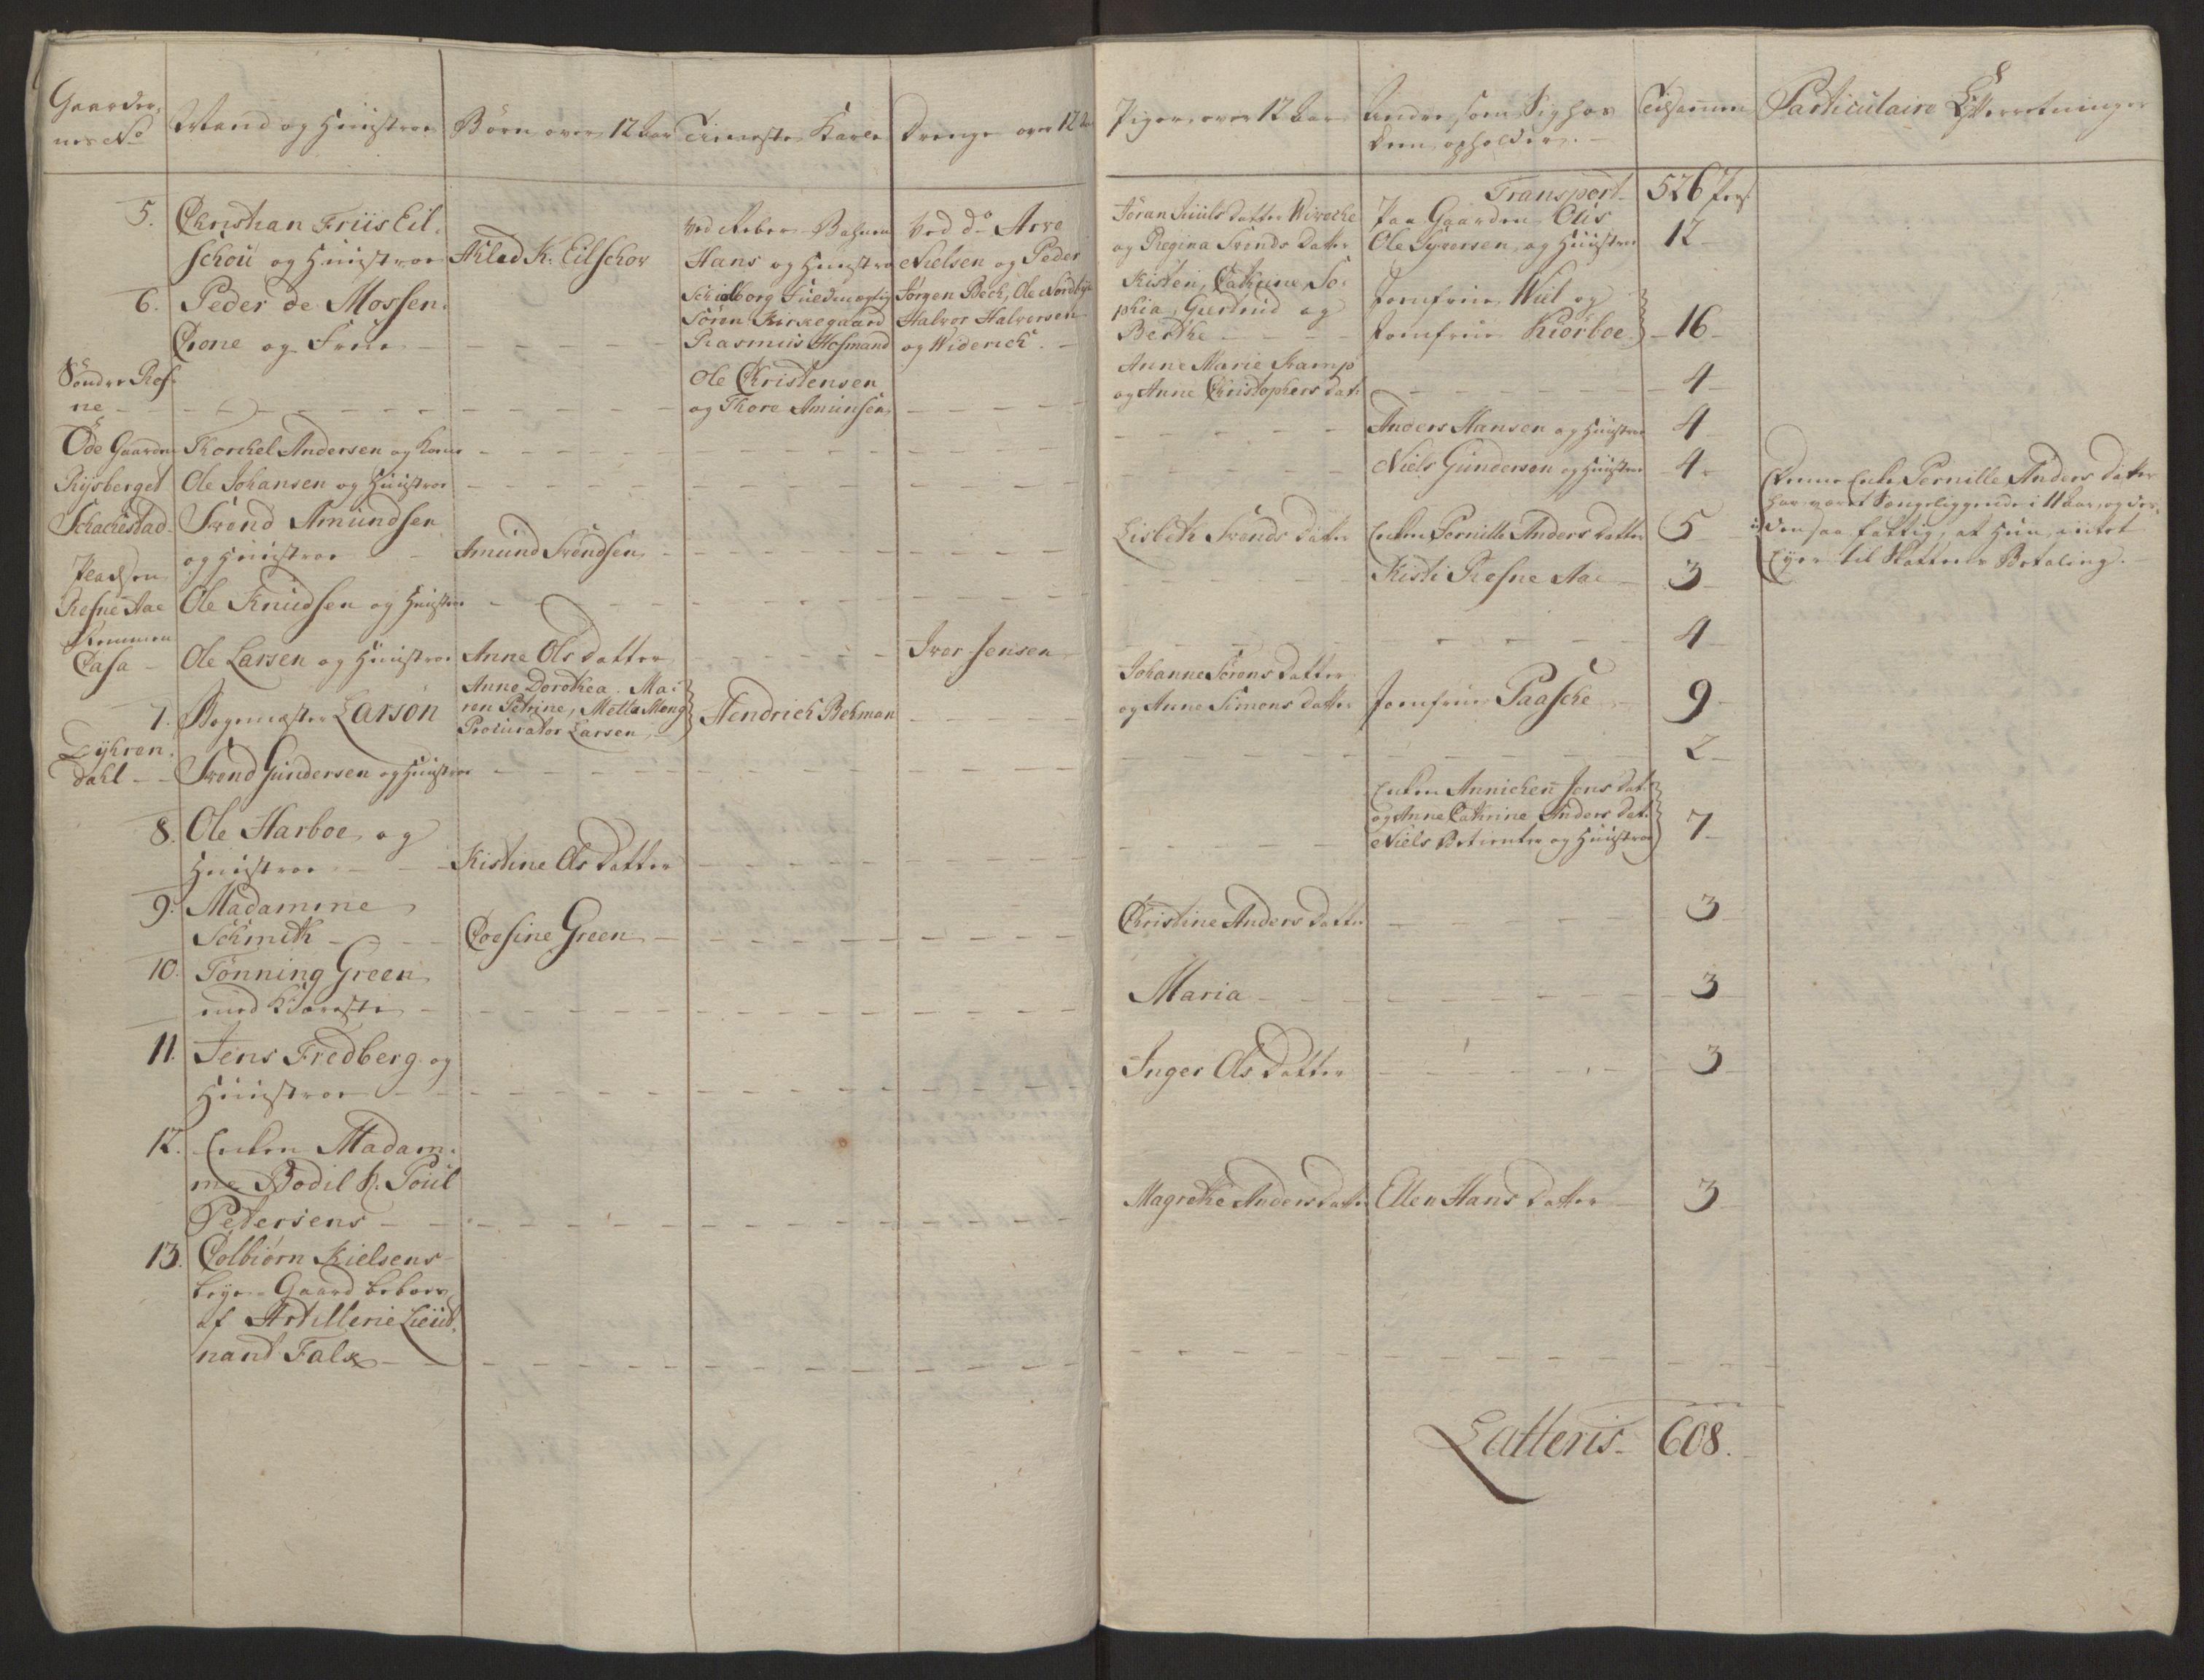 Gaarder,
nes No
Mand og Huustroe
Börn over 12 Aar
Tieneste Karle
Drenge over 12 Aar
Piger over 12 Aar
Andre som Sig hos
dem opholder.
Tilsamen
Particulaire Efterretninger
Transport 526 Pers:
5. Christian Friis Eil-
schou og Huustroe
Ahlad K. Eilschov
Ved Reber-Bahnen
Hans og Huustroe
Ved do Arve
Nielsen og Peder
Jöran Juuls datter Wiroche
og Regina Svends datter
Paa Gaarden Otis
Ole Syversen og Huustroe
12
6. Peder de Mossen-
Crone og Frue
Schielborg Fuldmegtig
Sören Kirkegaard
Rasmus Hofmand
Jörgen Bech, Ole Nordbye
Halvor Halvorsen
og Widerich.
Kisten, Cathrine, So-
phia, Gurtrud og
Berthe
Jomfrue Wiel og
Jomfrue Kiörboe
16
Söndre Ref-
ne
Ole Christensen
og Thore Amunsen
Anne Marie Kamp
og Anne Christophers dat:
4
Öde Gaarden
Thorchel Andersen og Kone
Anders Hansen og Huustroe
4
Rysberget
Ole Johansen og Huustroe
Niels Gundersen og Huustroe
4
Schachestad
Svend Amundsen
og Huustroe
Amund Svendsen
Lisbeth Svends datter
Enken Pernille Anders datter
5
Denne Enke Pernille Anders datter
har været Sengeliggende i 11 Aar, og des-
uden saa fattig, at Hun intet
Eyer til Skattens Betaling.
Pladsen
Refne Aae
Ole Knudsen og Huustroe
Kisti Refne Aae
3
Remmen
Casa
Ole Larsen og Huustroe
Anne Ols datter
Iver Jensen
4
7. Bogemester Larson
Anne Dorothea. Ma-
ren Petrine, Metta Mang
Procurator Larsen
Hendrich Behman
Johanne Sörens datter
og Anne Simons datter
Jomfrue Paasche
9
Lykron-
dahl
Svend Gundersen og Huustroe
2
8. Ole Harboe og
Huustroe
Kistine Ols datter
Enken Annichen Jens dat:
og Anne Cathrine Anders dat:
Niels Betienter og Huustroe
7
9. Madamme
Schmith
Coesine Green
Christine Anders datter
3
10. Tönning Green
med Kiæreste
Maria
3
11. Jens Fredberg og
Huustroe
Inger Ols datter
3
12. Enken Madam-
me Bodil S. Poul
Petersens
Magrethe Anders datter
Ellen Hans datter
3
13. Colbiörn Kielsens
Leye-Gaard beboes
af Artillerie Lieut-
nant Falk
Latteris 608.